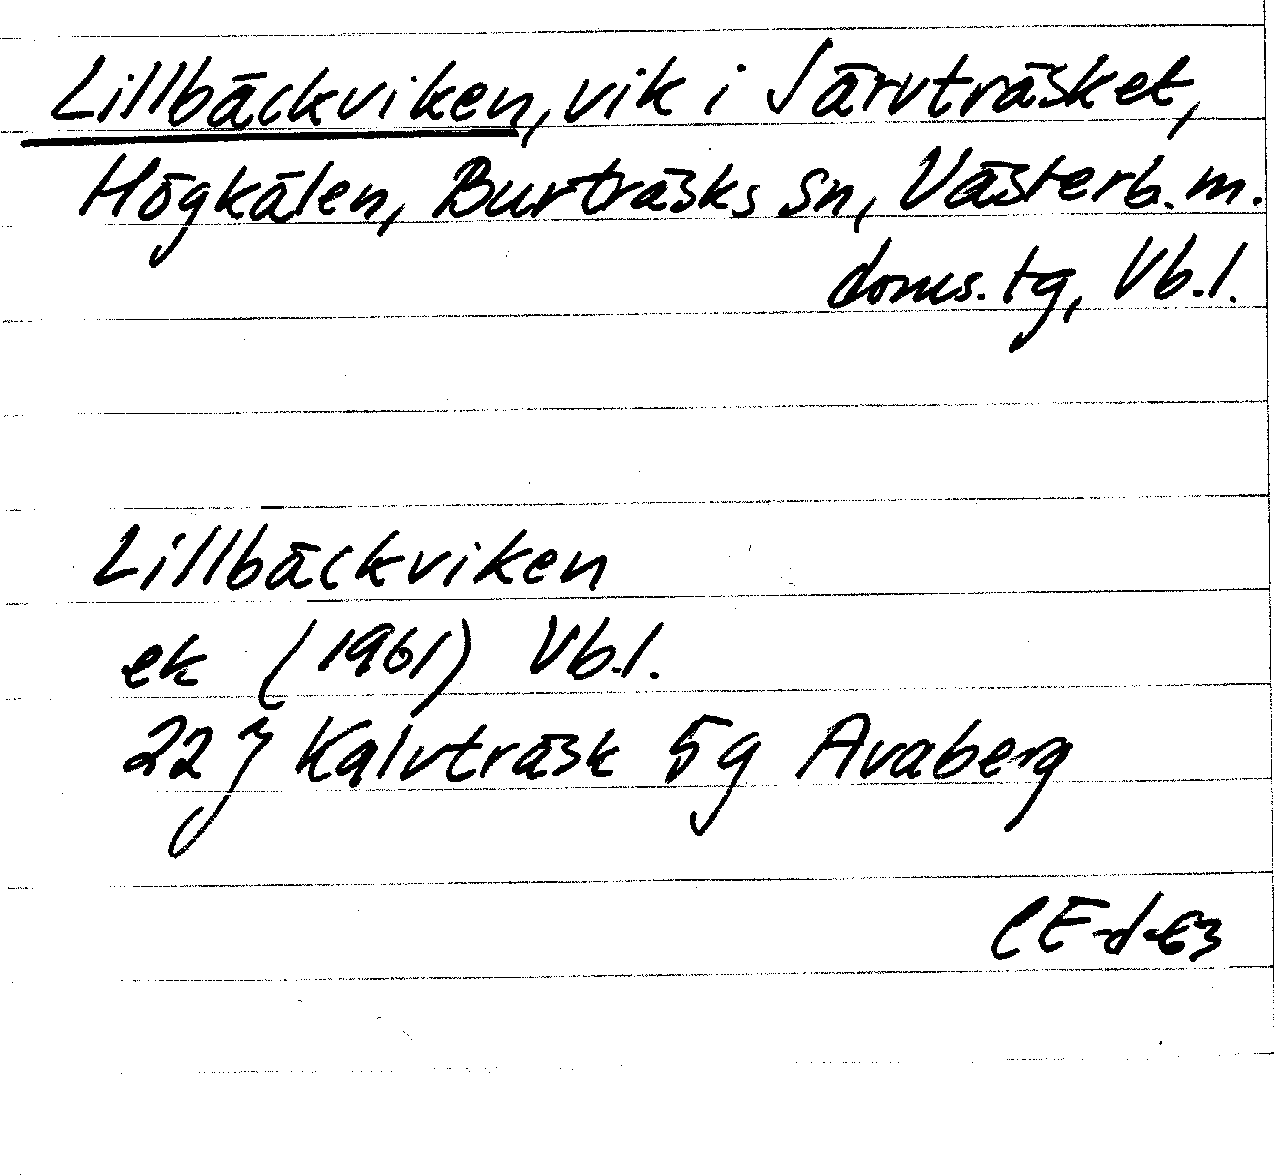 Lillbäckviken, vik i Järvträsket,
Högkälen, Burträsks sn, Västerb. m.
doms. tg, Vb. l.
Lillbäckviken
ek (1961) Vb. l.
22 J Kalvträsk 5g Avaberg
CE-d-63